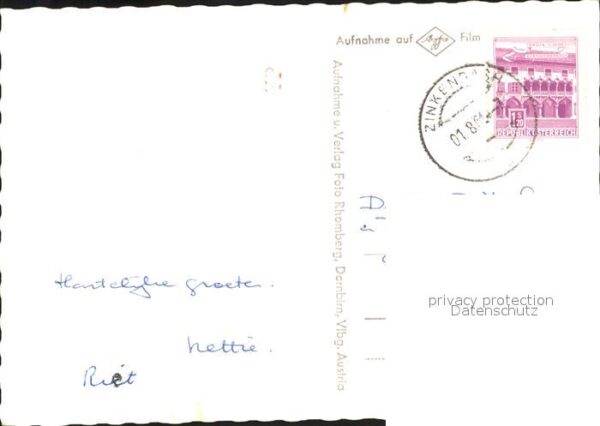 Aufnahme auf Agfa Film
ZINKENBACH
01.8.6
1.20
S
REPUBLIK ÖSTERREICH
Aufnahme u. Verlag Foto Rhomberg, Dornbirn, Vlbg. Austria
Hartelijke groeten.
Nettie.
Riet
privacy protection
Datenschutz